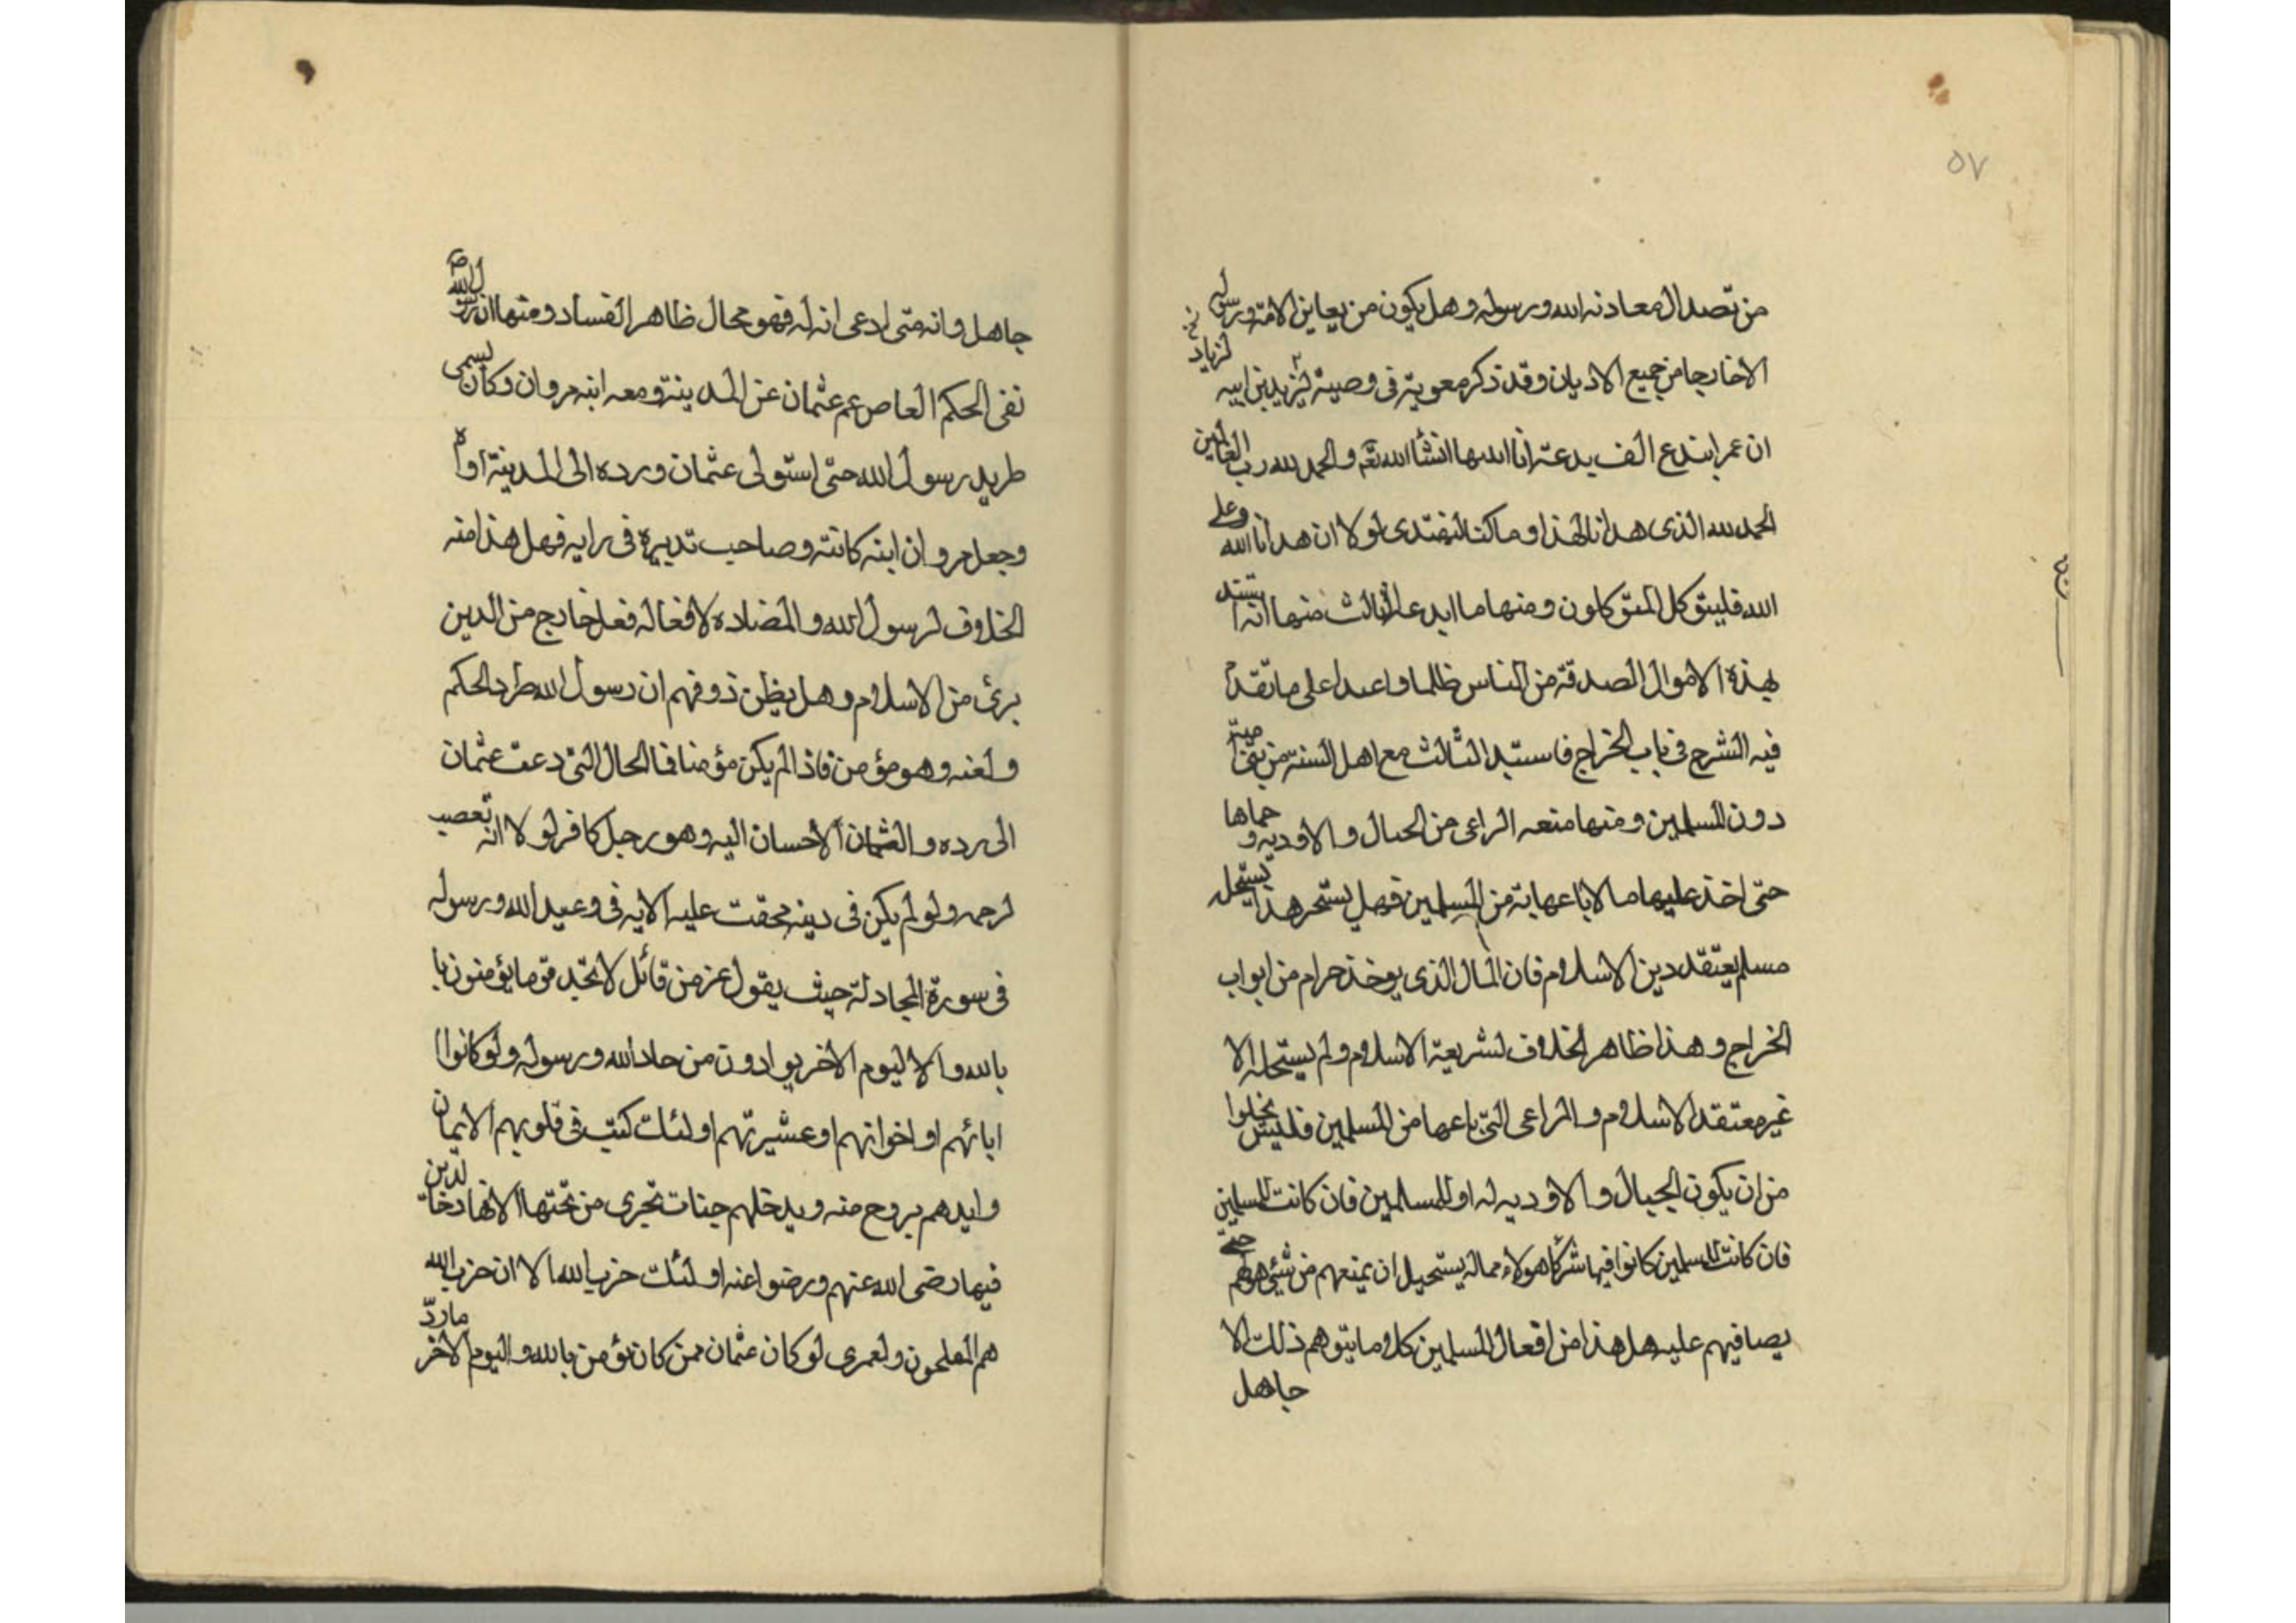 ٥٧
من تصدا لمعادنه الله ورسوله وهل يكون من يعاين الامة ورسوله
الاخارجا من جميع الاديان وقد ذكر معوية فى وصية ليزيد بن ابيه
نخ لزياد
ان عمر ابتدع الف بدعة انشأ الله تعم والحمد لله رب العالمين
الحمد لله الذى هدانا لهذا وما كنا لنهتدى لولا ان هدانا الله وعلى
الله فليتوكل المتوكلون ومنها ما ابدعا الثالث منها انه استبد
بهذة الاموال الصدقة من الناس ظلما واعدا على ما تقدم
فيه الشرح فى باب الخراج فاستبد الثالث مع اهل السنة من بنى امية
دون المسلمين ومنها منعه المراعى من الجبال والاوديه و حماها
حتى اخذ عليها مالا باعها به من المسلمين فهل يستحر هذا يستحل
مسلم يعتقد دين الاسلام فان المال الذى يوخذ حرام من ابواب
الخراج وهذا ظاهر الخلاف لشريعة الاسلام ولم يستحله الا
غير معتقد الاسلام والمراعى التى باعها من المسلمين فليس يخلوا
من ان يكون الجبال والاوديه له او للمسلمين فان كانت للمسلمين
فان كانت للمسلمين كانوا فيها شركا هولاء مما له يستحيل ان يمنعهم من شيئ هولهم حتى
يصافيهم عليه هل هذا من افعال المسلمين كلا وما يتوهم ذلك الا
جاهل
جاهل وانه متى ادعى انه له فهو محال ظاهر الفساد ومنها ان رسول الله ص
نفى الحكم العاص عم عثمان عن المدينة ومعه ابنه مروان وكان يسمى
طريد رسول الله حتى استولى عثمان ورده الى المدينة اواه
وجعل مروان ابنه كاتبه وصاحب تدبيره فى رايه فهل هذا منه
الخلاف لرسول الله والمضاده لافعاله فعل خارج من الدين
برئ من الاسلام وهل يظن ذو فهم ان رسول الله طرد الحكم
ولعنه وهو مؤمن فاذا لم يكن مؤمنا فا الحال التى دعت عثمان
الى رده والعثمان الاحسان اليه وهو رجل كافر لولا انه تعصب
لرحمه ولو لم يكن فى دينه فحقت عليه الايه فى وعيد الله ورسوله
فى سورة المجادلة حيث يقول عز من قائل لا تجد قوما يؤمنون با
بالله والا ليوم الاخر يوادون من حاد الله ورسوله ولو كانوا ا
ابائهم او اخوانهم او عشيرتهم اولئك كتب فى قلوبهم الايمان
وايدهم بروح منه ويدخلهم جنات تجرى من تحتها الانهار خالدين
فيها رضى الله عنهم ورضوا عنه اولئك حزب الله الا ان حزب الله
هم المفلحون ولعمرى لو كان عثمان ممن كان يؤمن بالله واليوم الاخر مارد